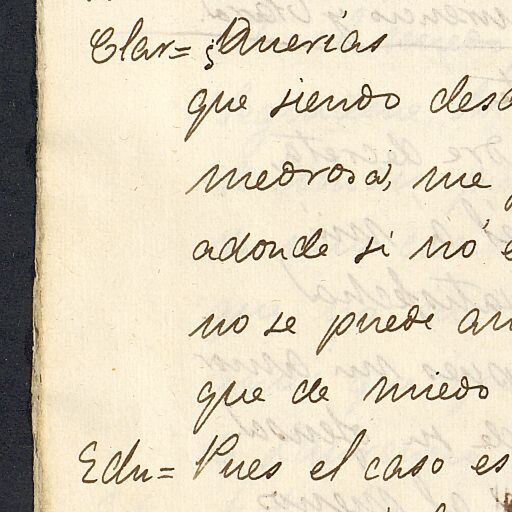 Clar= ¿Querías
que siendo
medrosa, me
adonde si no
no se puede
que de miedo
Edu= Pues el caso es